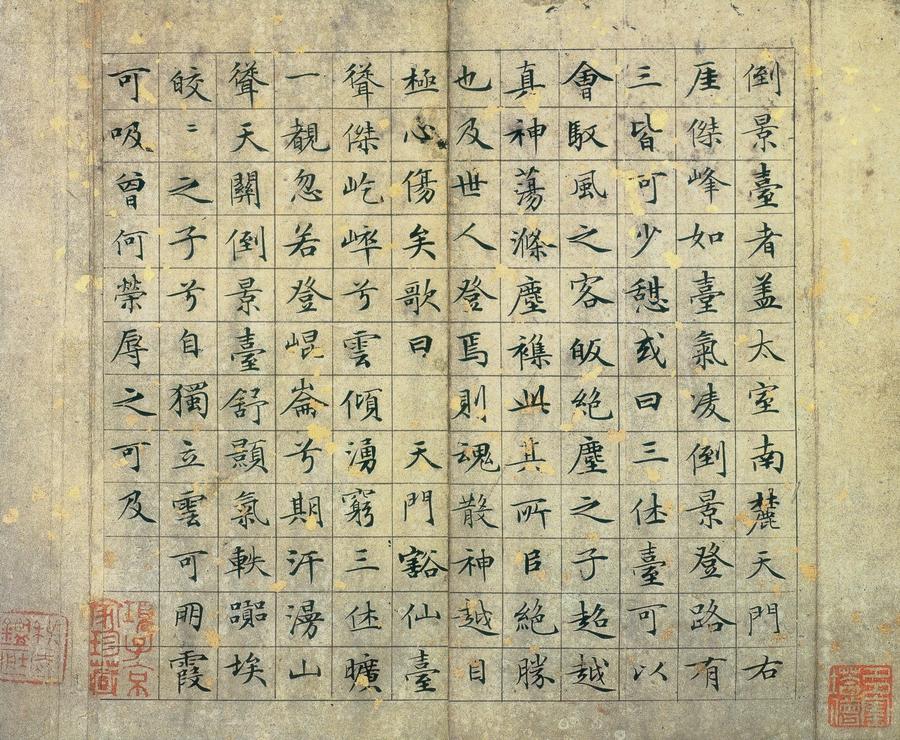 倒景臺者盖太室南麓天門右
厓傑峰如臺氣凌倒景登路有
三皆可少憇或曰三休臺可以
會馭風之客皈絶塵之子超越
真神蕩滌塵襍此其所㠯絶勝
也及世人登焉則魂散神越目
極心傷矣歌曰 天門豁仙臺
聳傑屹崪兮雲傾湧窮三休曠
一覩忽若登崐崙兮期汗漫山
聳天關倒景臺舒顥氣軼囂埃
皎〻之子兮自獨立雲可朋霞
可吸曾何榮辱之可及
項子京家珍藏